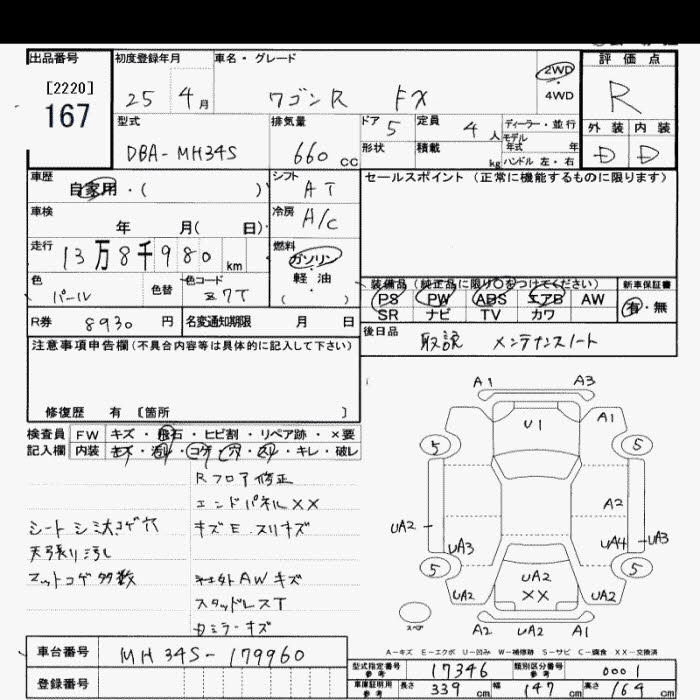 出品番号
[2220]
167
初度登録年月
25 4月
車名・グレード
ワゴンR FX
2WD
・
4WD
評価点
R
外装 内装
D D
型式
DBA-MH34S
排気量
660 cc
ドア 5
形状
定員 4人
積載 kg
ディーラー・並行
モデル
年式 年
ハンドル 左・右
車歴
自家用・( )
シフト
AT
セールスポイント(正常に機能するものに限ります)
車検
年 月( 日)
冷房
A/C
走行
13万8千980 km
燃料
ガソリン
・
軽油
( )
色
パール
色替
色コード
Z7T
装備品(純正品に限り○をつけてください)
PS PW ABS エアB AW
SR ナビ TV カワ
新車保証書
有・無
R券 8930 円
名変通知期限 月 日
後日品
取説 メンテナンスノート
注意事項申告欄(不具合内容等は具体的に記入して下さい)
修復歴 有 [箇所 ]
検査員
記入欄
FW キズ・飛石・ヒビ割・リペア跡・×要
内装 キズ・汚れ・コゲ・穴・スレ・キレ・破レ
Rフロア修正
エンドパネル××
シート シミ大コゲ穴
キズE.スリキズ
天張り汚れ
マットコゲ多数
社外AWキズ
スタッドレスT
カミラーキズ
A1 A3
U1 A1
5 5
A2
UA2 UA3 UA4 UA3
5 5
UA2 UA2 UA2
××
スペア
A2 UA2 A1
A-キズ E-エクボ U-凹み W-補修跡 S-サビ C-腐食 XX-交換済
車台番号
MH34S-179960
登録番号
型式指定番号
参考
17346
類別区分番号
参考
0001
車庫証明用
参考
長さ 339 cm 幅 147 cm 高さ 164 cm